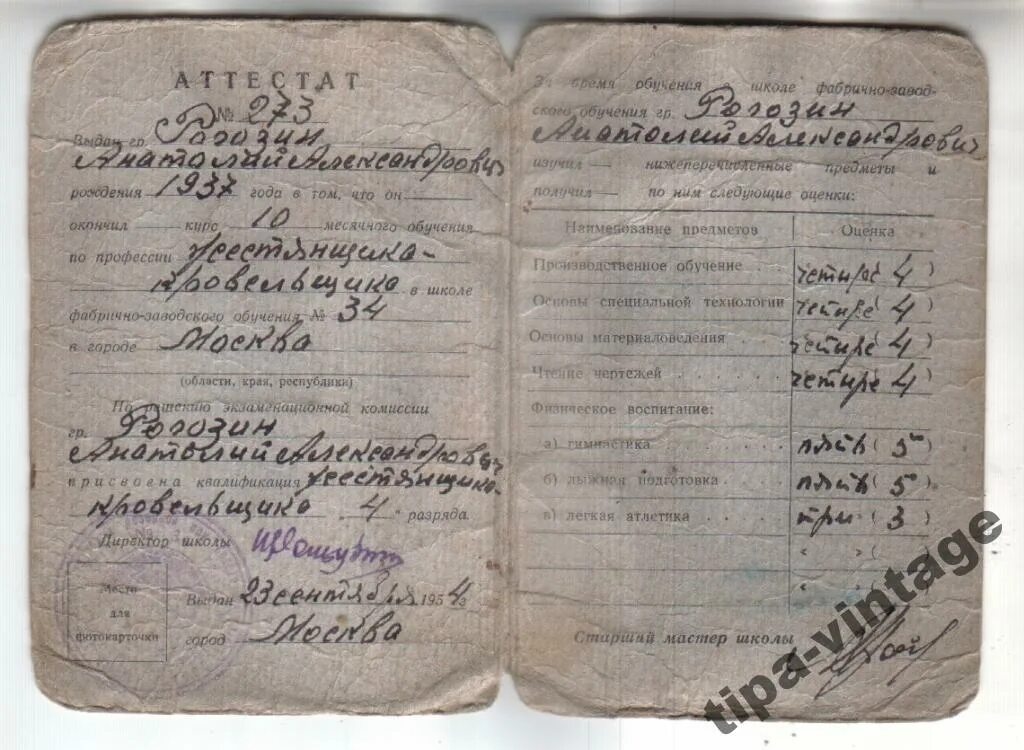 АТТЕСТАТ
№ 273
Выдан гр. Рогозин
Анатолий Александрович
рождения 1937 года в том, что он
окончил курс 10 месячного обучения
по профессии жестянщика-
кровельщика в школе
фабрично-заводского обучения № 34
в городе Москва
(области, края, республики)
По решению экзаменационной комиссии
гр. Рогозин
Анатолий Александрович
присвоена квалификация жестянщика-
кровельщика 4 разряда.
Директор школы
Место
для
фотокарточки
Выдан 23 сентября 1954 г
город Москва
За время обучения в школе фабрично-завод-
ского обучения гр. Рогозин
Анатолий Александрович
изучил — нижеперечисленные предметы и
получил — по ним следующие оценки:
Наименование предметов Оценка
Производственное обучение . . . четыре 4 )
Основы специальной технологии четыре 4 )
Основы материаловедения . . . . четыре 4 )
Чтение чертежей . . . . . . . четыре 4 )
Физическое воспитание:
а) гимнастика . . . . . . пять ( 5 )
б) лыжная подготовка . . . . пять ( 5 )
в) легкая атлетика . . . . . три ( 3 )
« » ( )
« » ( )
Старший мастер школы
tipa-vintage